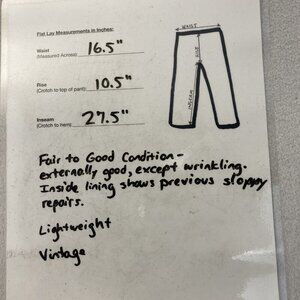 Flat Lay Measurements in Inches:
Waist
(Measured Across) 16.5"
Rise
(Crotch to top of pant) 10.5"
Inseam
(Crotch to hem) 27.5"
WAIST
RISE
INSEAM
Fair to Good Condition -
externally good, except wrinkling.
Inside lining shows previous sloppy
repairs.
Lightweight
Vintage